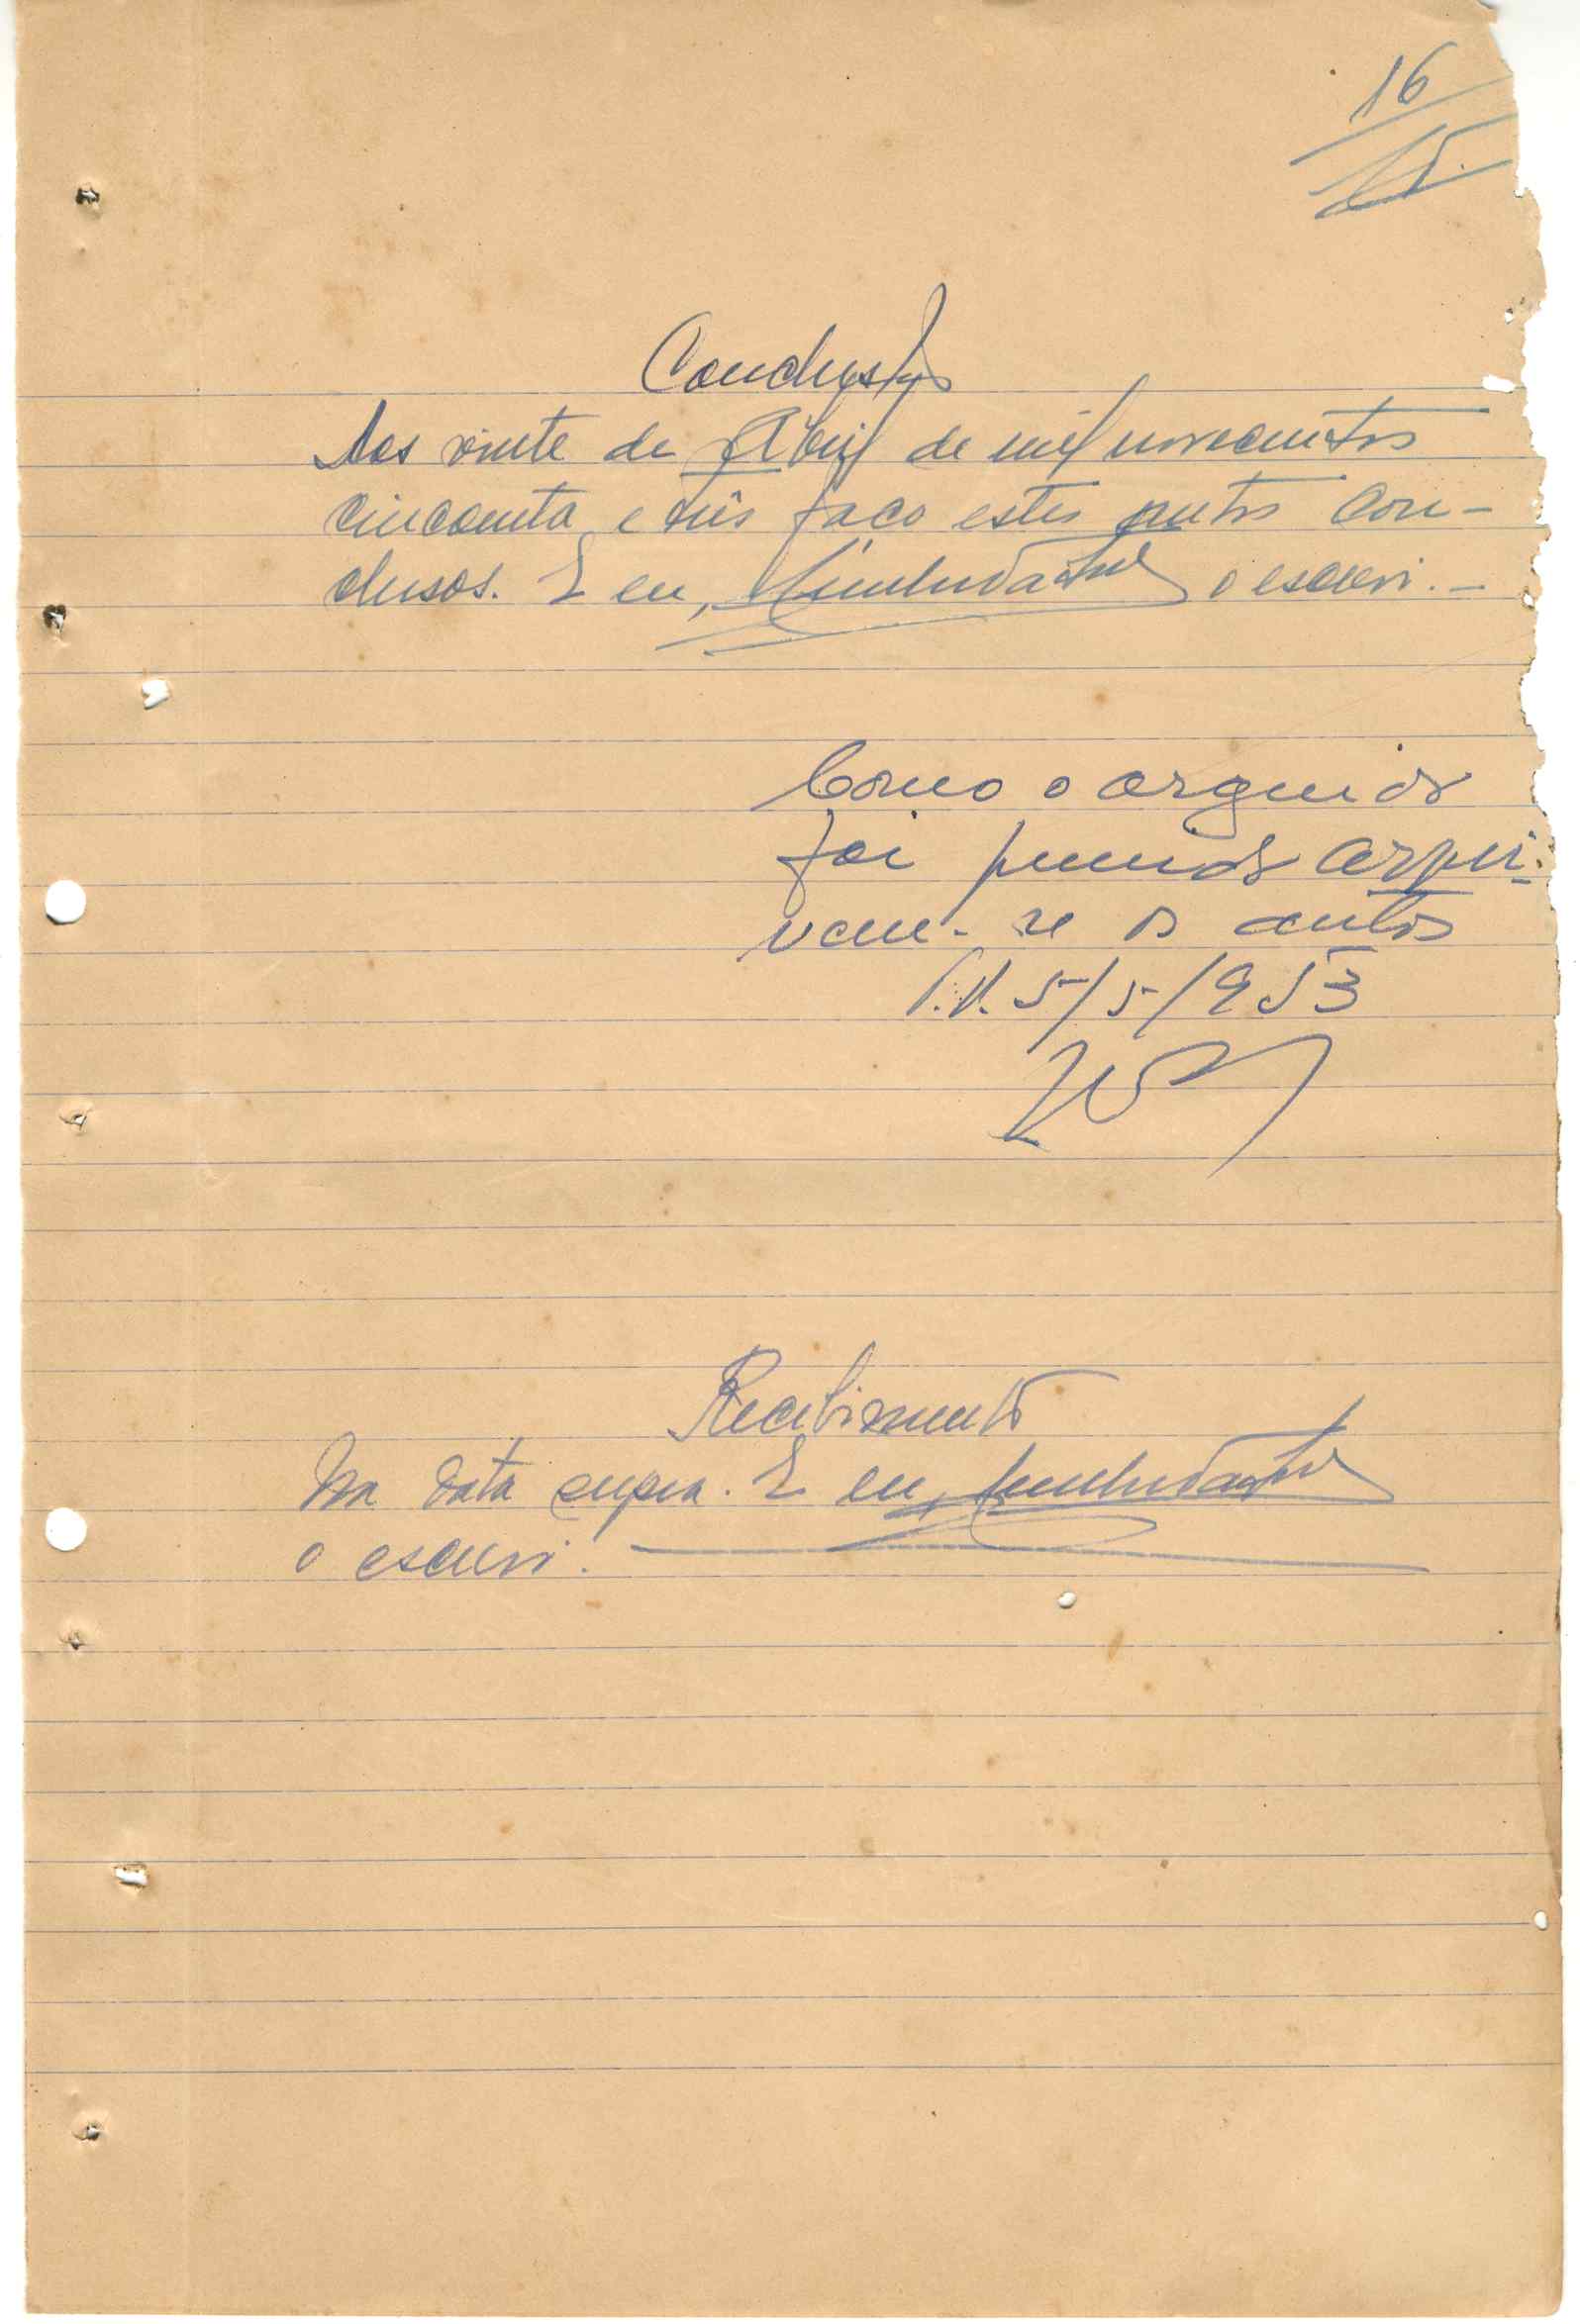 16
Conclusão
Aos vinte de Abril de mil novecentos
cincoenta e três faço estes autos con-
clusos. E eu, o escrevi. -
Como o arguido
foi punido arqui-
vem-se os autos
5/5/953
Recebimento
Na data supra. E eu,
o escrevi.